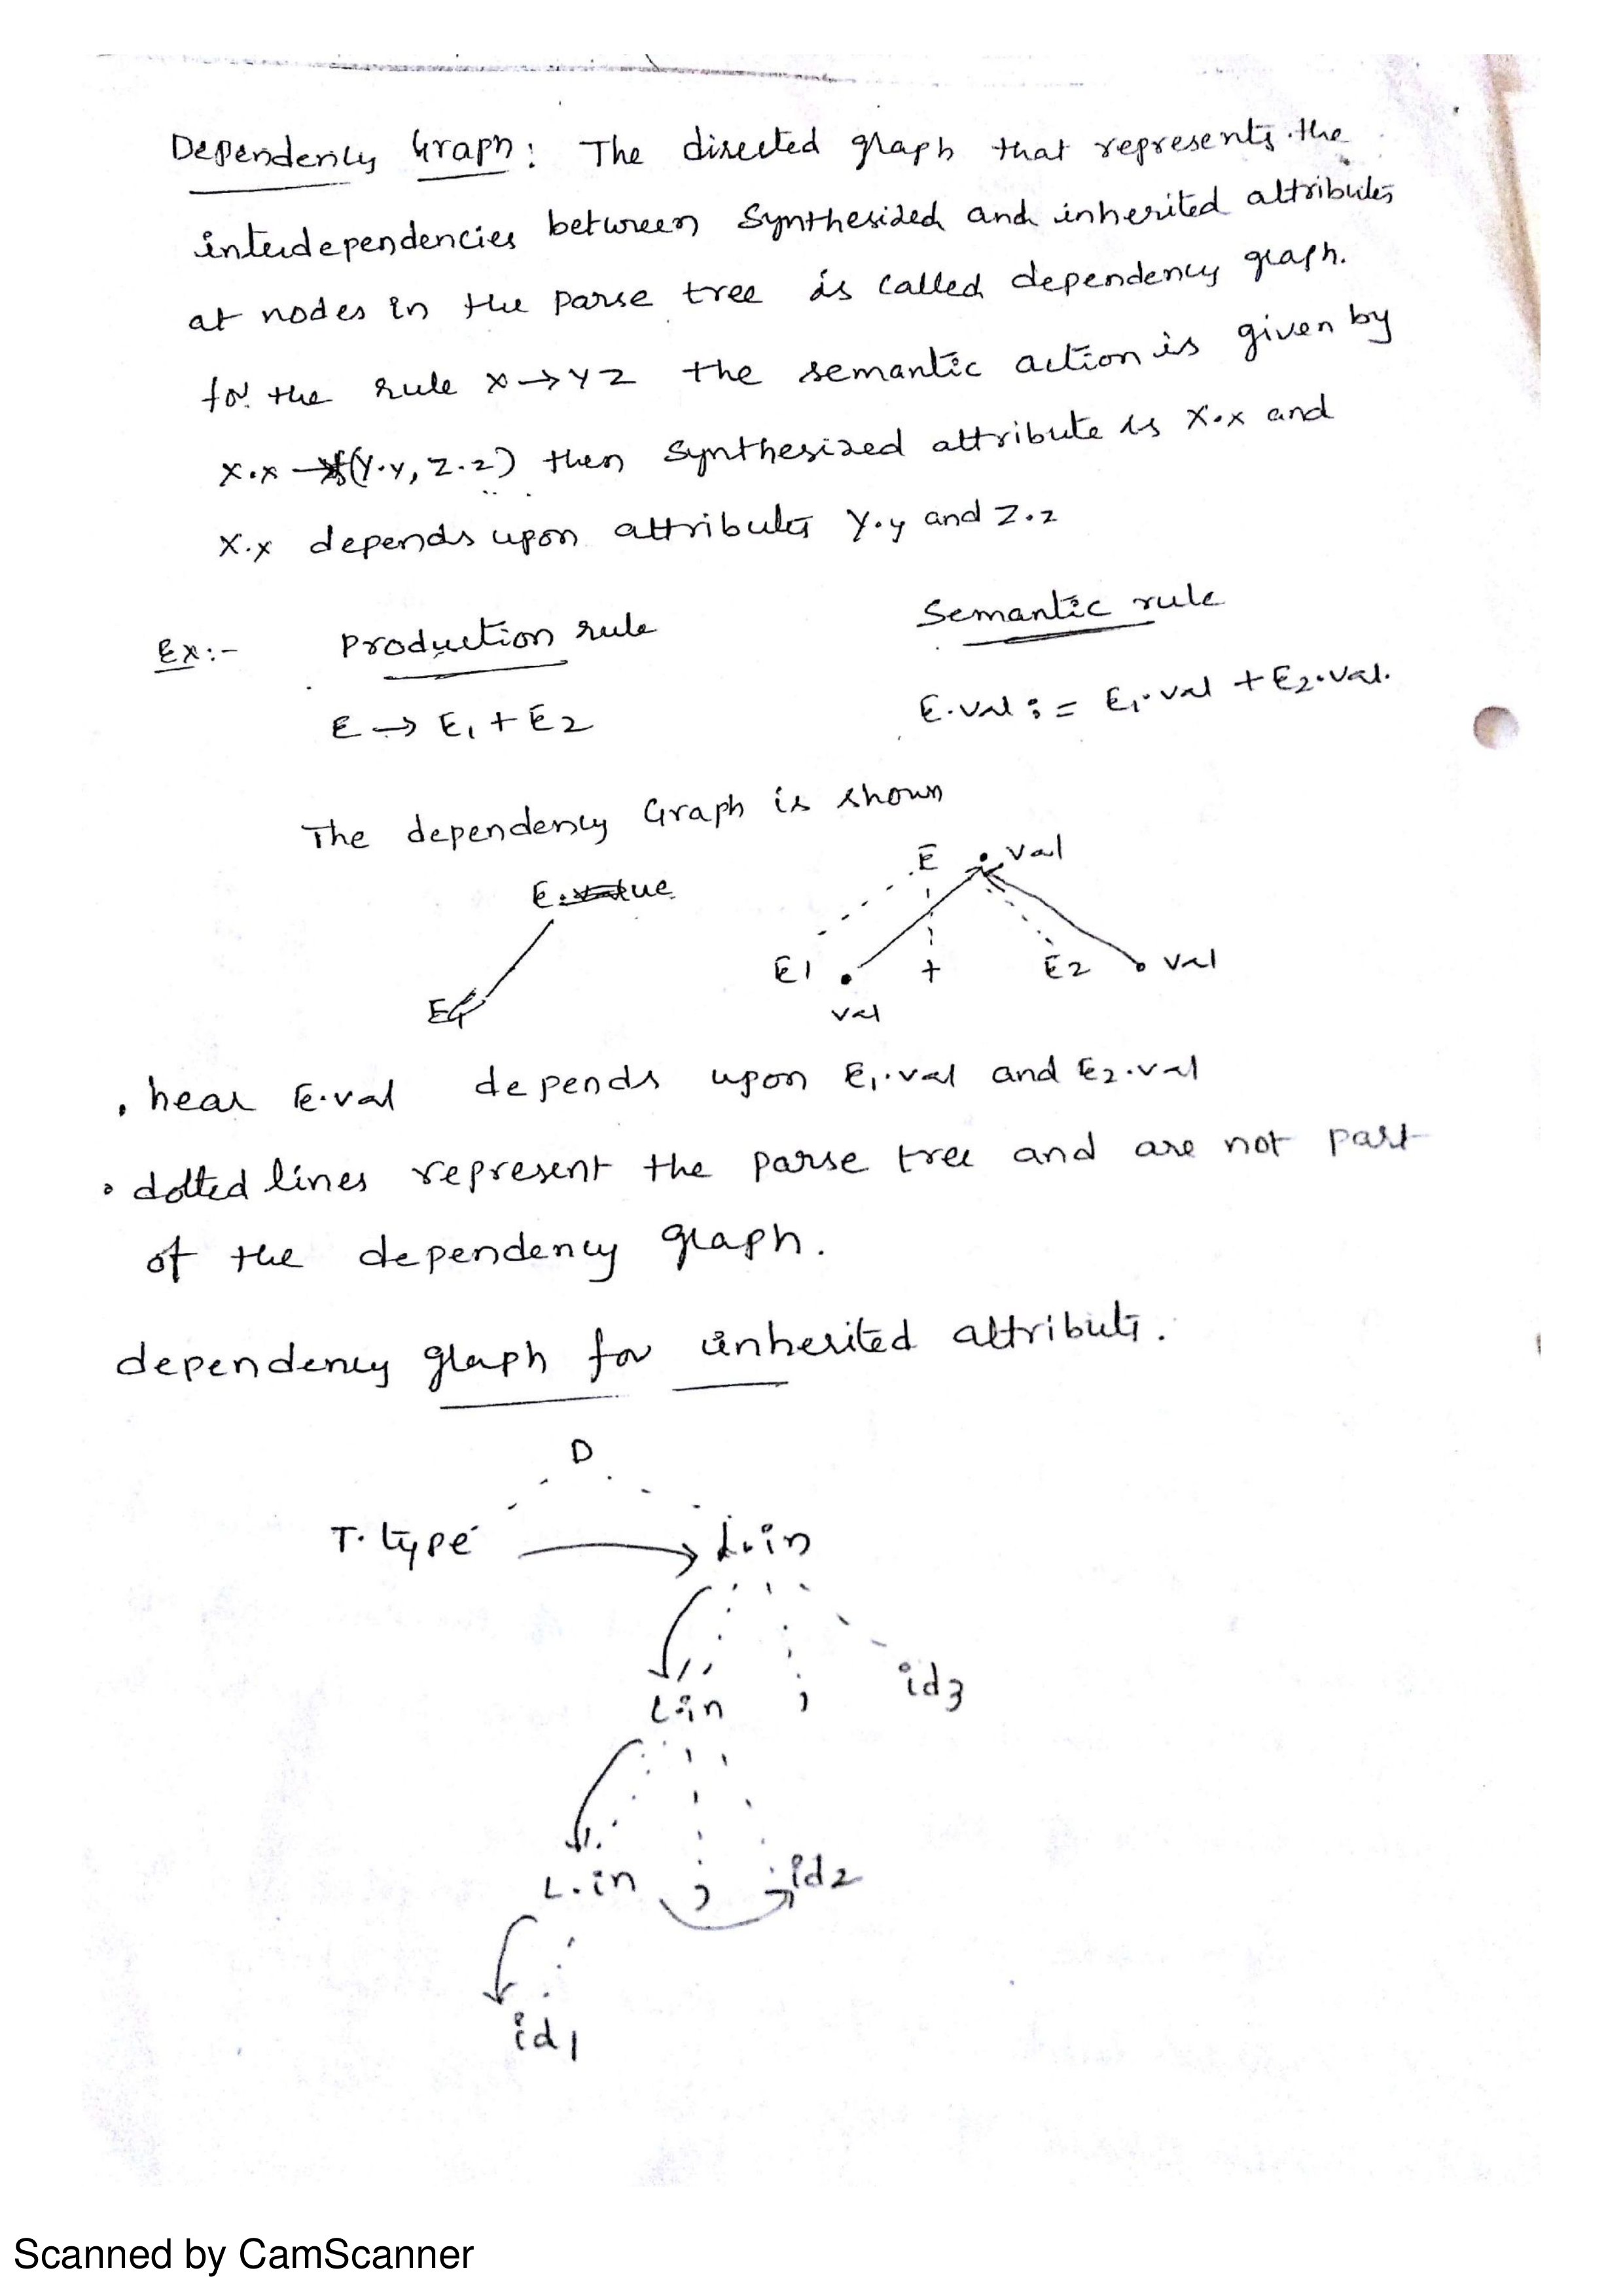 Dependency Graph: The directed graph that represents the
interdependencies between Synthesized and inherited attributes
at nodes in the parse tree is called dependency graph.
for the rule X→YZ the semantic action is given by
X.x → f(Y.y, Z.z) then synthesized attribute is X.x and
X.x depends upon attributes Y.y and Z.z
Ex:- Production rule Semantic rule
E → E1 + E2 E.val := E1.val + E2.val.
The dependency Graph is shown
E val
E1 + E2 val
val
. hear E.val depends upon E1.val and E2.val
• dotted lines represent the parse tree and are not part
of the dependency graph.
dependency graph for inherited attributes.
D
T.type L.in
L.in , id3
L.in , id2
id1
Scanned by CamScanner